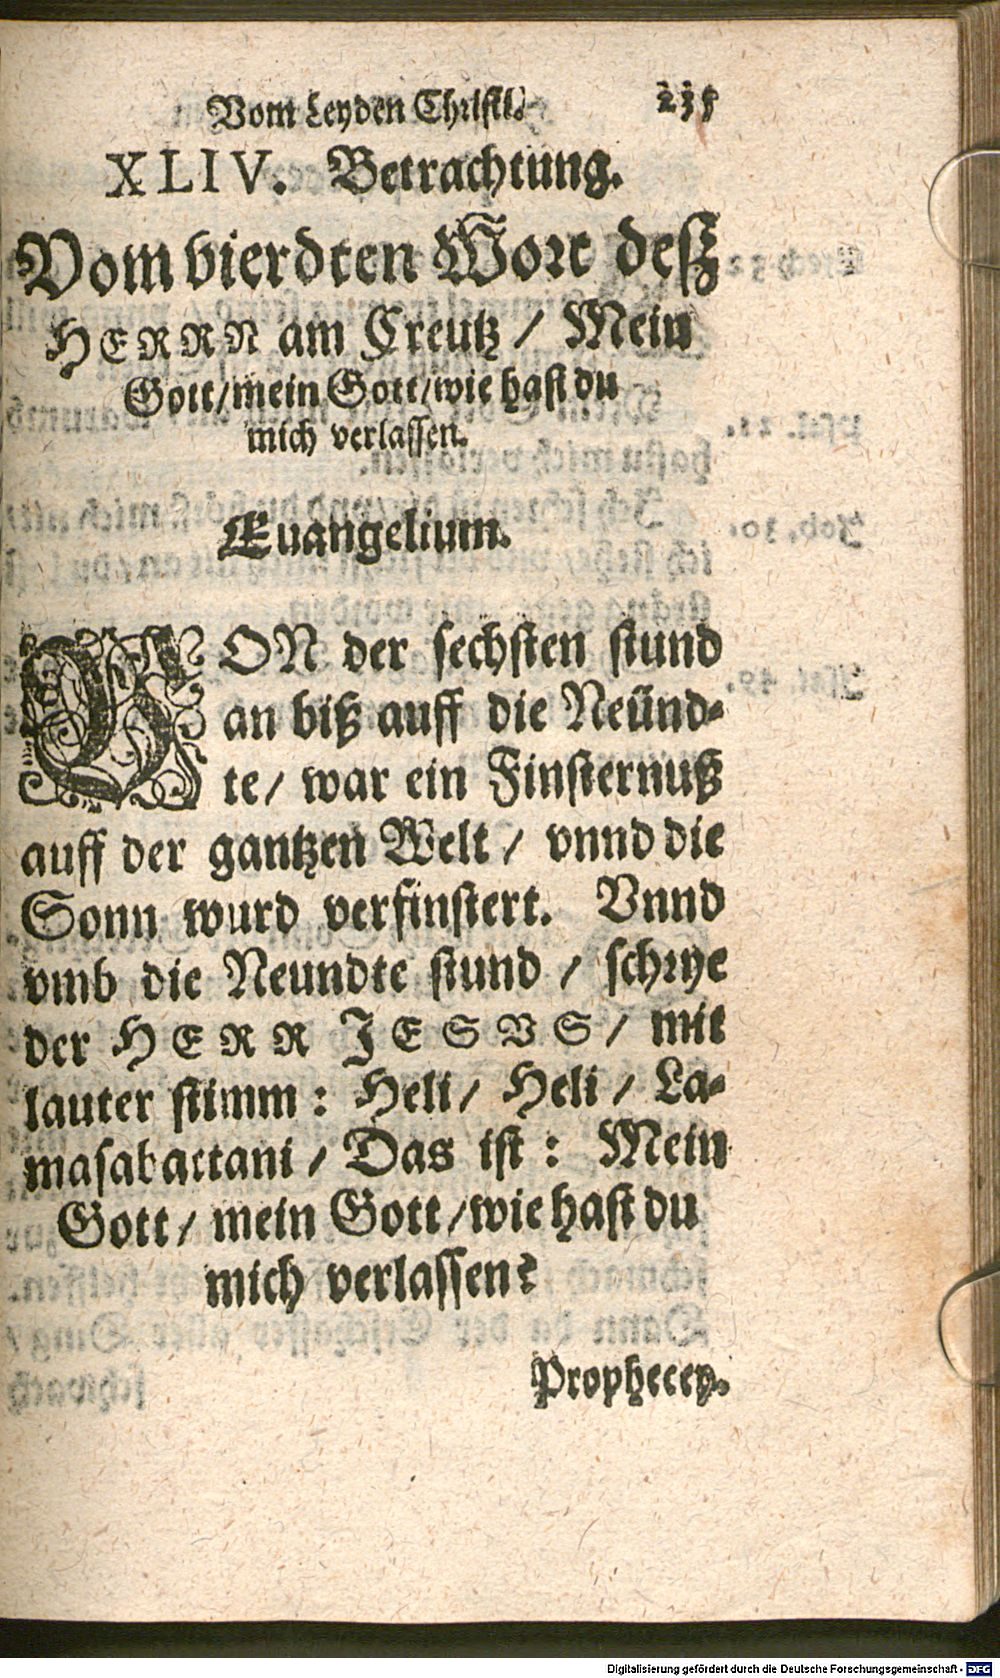 Vom Leyden Christi. 235
XLIV. Betrachtung.
Vom vierdten Wort deß
HERRN am Creutz / Mein
Gott/mein Gott/wie hast du
mich verlassen.
Euangelium.
VON der sechsten stund
an biß auff die Neünd-
te/ war ein Finsternuß
auff der gantzen Welt / vnnd die
Sonn wurd verfinstert. Vnnd
vmb die Neundte stund / schrye
der HERR JESVS / mit
lauter stimm : Heli/ Heli / La-
masabattani / Das ist : Mein
Gott / mein Gott /wie hast du
mich verlassen?
Prophecey.
Digitalisierung gefördert durch die Deutsche Forschungsgemeinschaft - DFG